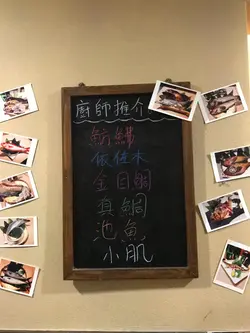 廚師推介
魴鮄
依佐木
金目鯛
真鯛
池魚
小肌